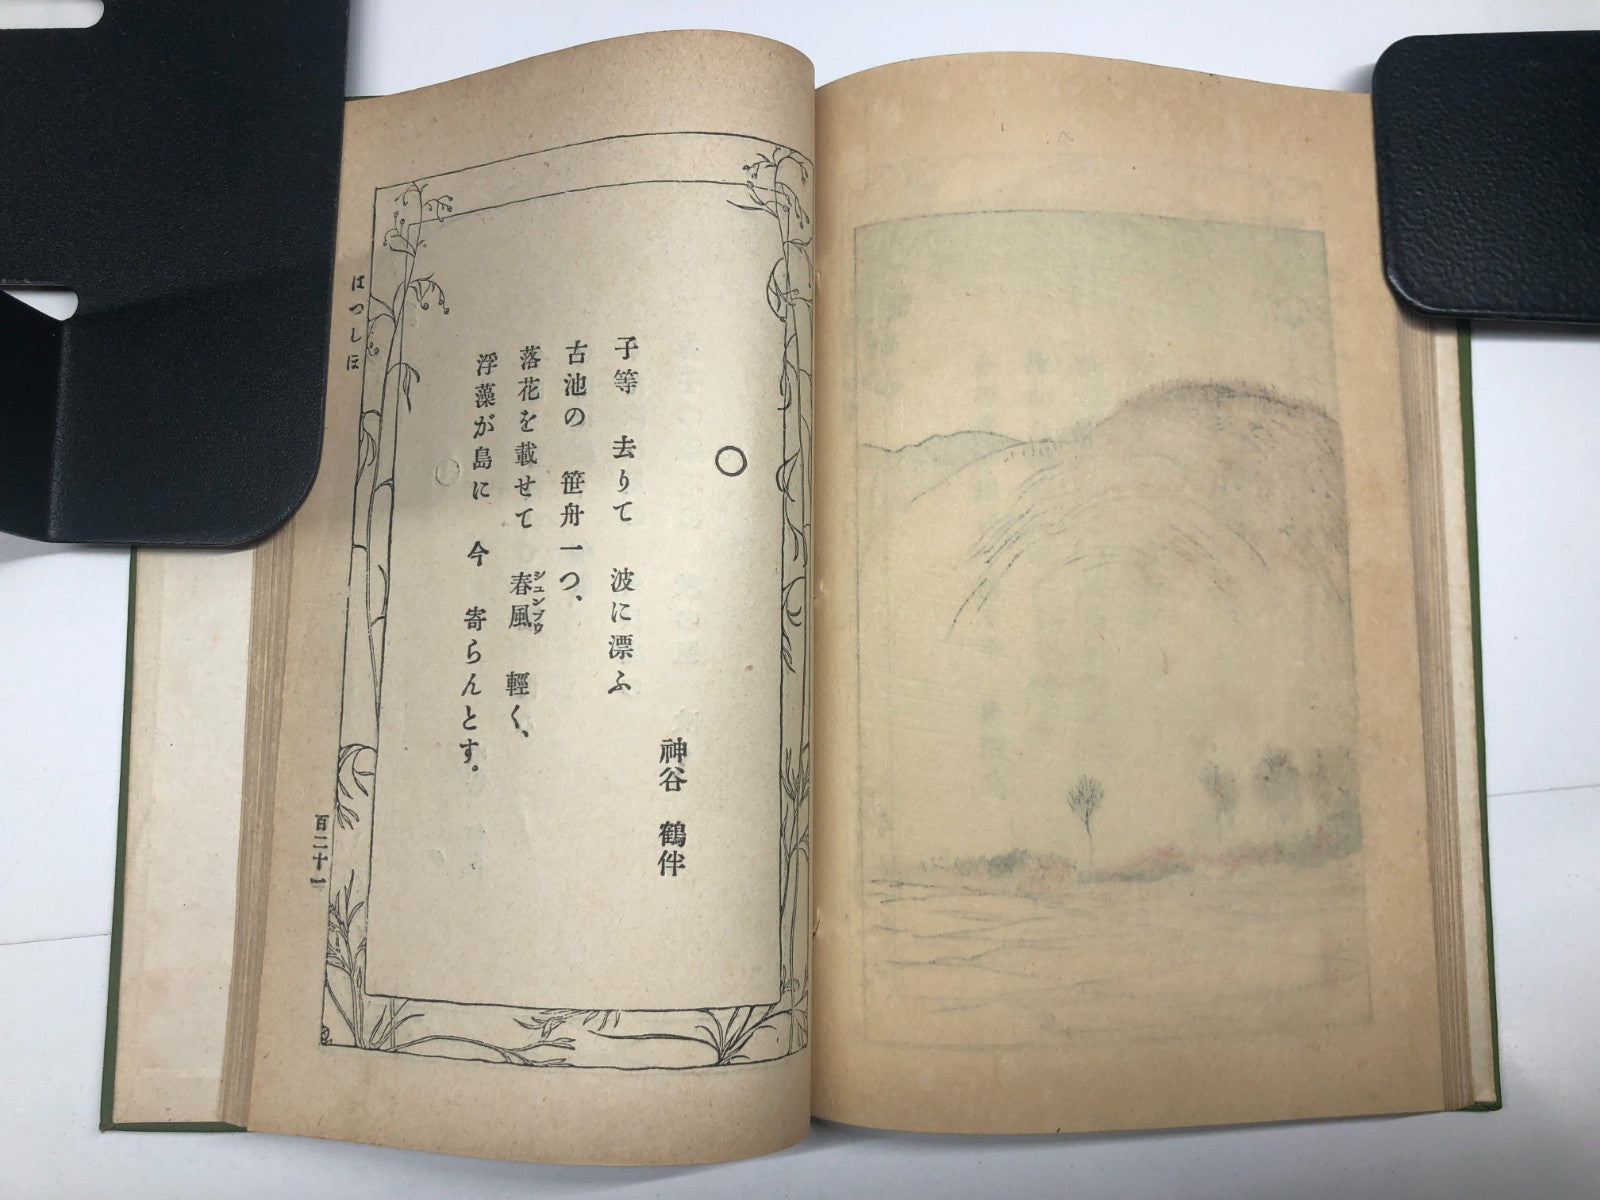 ○
神谷 鶴伴
子等 去りて 波に漂ふ
古池の 笹舟一つ、
落花を載せて 春風 輕く、
シユンプウ
浮藻が島に 今 寄らんとす。
はつしほ
百二十一